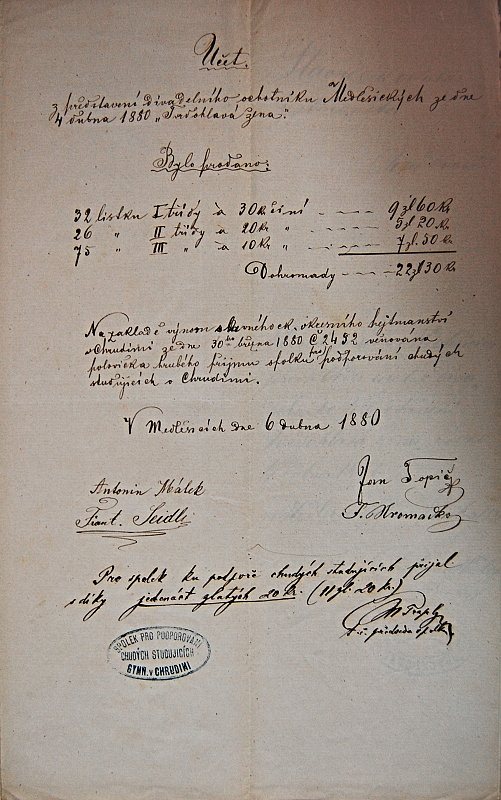 Účet.
z představení divadelního ochotníku Medlešických ze dne
4 dubna 1880 „Svéhlavá žena."
Bylo prodáno:
32 lístku I třídy à 30 kr činí - - - 9 zl 60 kr
26 „ II třídy à 20 kr „ - - - 5 zl 20 kr
75 „ III „ à 10 kr „ - - - 7 zl. 50 kr
Dohromady - - - 22 zl 30 kr
Na základě výnosu slavného c.k. okresního hejtmanství
v Chrudimi ze dne 30ho března 1880 Č 2452 věnována
polovička hrubého příjmu spolku pro podporování chudých
studujících v Chrudimi.
V Medlešicích dne 6 dubna 1880
Antonín Málek
Jan Topič
Frant. Seidl
F. Hromádko
Pro spolek ku podpoře chudých studujících přijal
s díky jedenáct zlatých 20 kr. (11 zl. 20 kr.)
t. č. předseda spolku
SPOLEK PRO PODPOROVÁNÍ
CHUDÝCH STUDUJÍCICH
GYMN. V CHRUDIMI